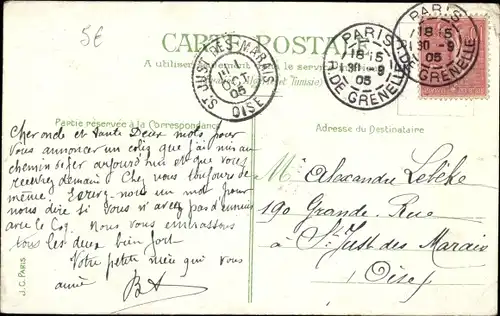 5€
CARTE POSTALE
A utiliser seulement dans le service
et Tunisie)
PARIS
18 15
30 -9
05
R. DE GRENELLE
PARIS
18 15
30 -9
05
R. DE GRENELLE
ST JUST DES MARAIS
1
OCT
05
OISE
Partie réservée à la Correspondance
Adresse du Destinataire
Cher oncle et tante Deux mots pour
vous annoncer un colis que j'ai mis au
chemin de fer aujourd'hui et que vous
recevrez demain. Chez vous toujours de
même. Ecrivez-nous un mot pour
nous dire si vous n'avez pas d'ennuis
avec le Coq. Nous vous embrassons
tous les deux bien fort
Votre petite nièce qui vous
aime
M. Alexandre
190 Grande Rue
à St Just des Marais
(Oise)
J.C. PARIS